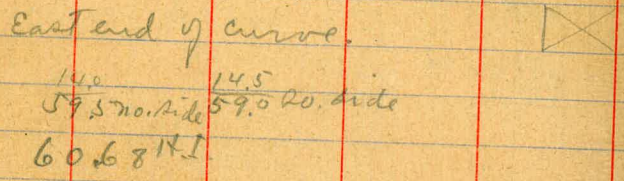 East end of curve.
14.0 14.5
59.5 no. side 59.0 So. side
60.68 H.I.